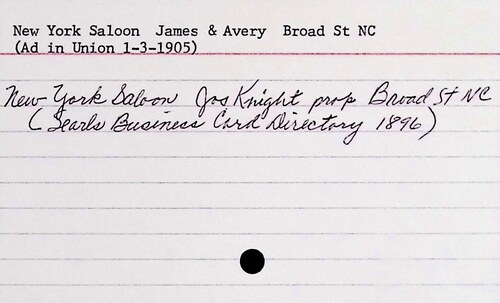 New York Saloon James & Avery Broad St NC
(Ad in Union 1-3-1905)
New York Saloon Jas Knight prop Broad St NC
(Searls Business Card Directory 1896)